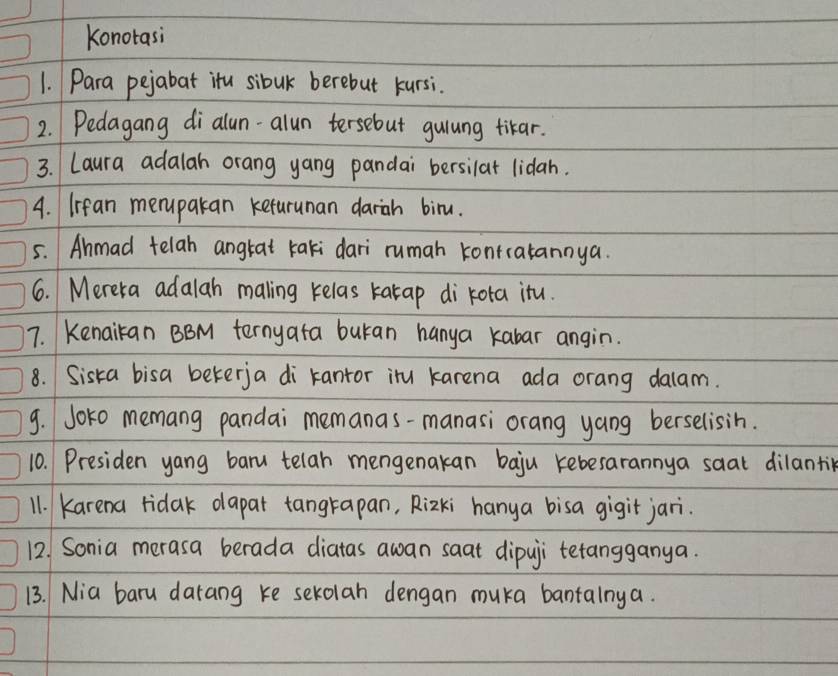 Konotasi
1. Para pejabat itu sibuk berebut kursi.
2. Pedagang di alun-alun tersebut gulung tikar.
3. Laura adalah orang yang pandai bersilat lidah.
4. Irfan merupakan keturunan dariah biru.
5. Ahmad telah angkat kaki dari rumah kontrakannya.
6. Mereka adalah maling kelas kakap di kota itu.
7. Kenaikan BBM ternyata bukan hanya kabar angin.
8. Siska bisa bekerja di kantor itu karena ada orang dalam.
9. Joko memang pandai memanas-manasi orang yang berselisih.
10. Presiden yang baru telah mengenakan baju kebesarannya saat dilantik
11. Karena tidak dapat tangkapan, Rizki hanya bisa gigit jari.
12. Sonia merasa berada diatas awan saat dipuji tetangganya.
13. Nia baru datang ke sekolah dengan muka bantalnya.